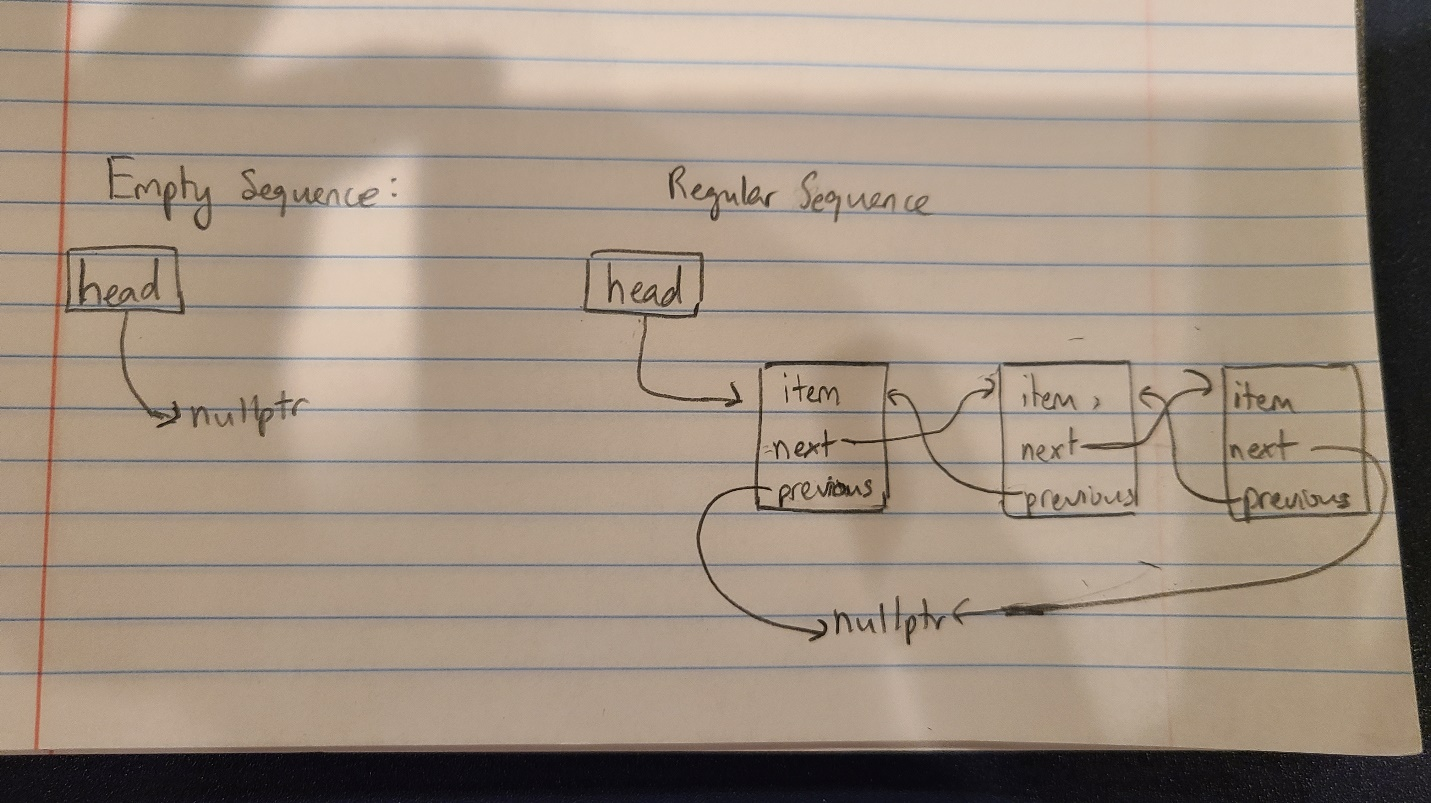 Empty Sequence:
head
nullptr
Regular Sequence
head
item
next
previous
item,
next
previous
item
next
previous
nullptr